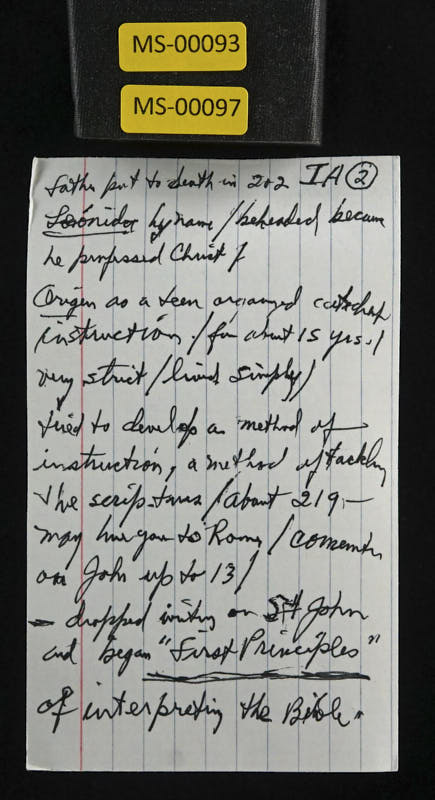 MS-00093
MS-00097
father put to death in 202 IA 2
Leonidas by name / beheaded because
he professed Christ /
Origen as a teen organized catechap
instruction / for about 15 yrs. /
very strict / lived simply /
tried to develop a method of
instruction, a method of tackling
the scriptures / about 219 –
may have gone to Rome / comments
on John up to 13 /
- dropped writing on St John
and began "First Principles"
of interpreting the Bible"